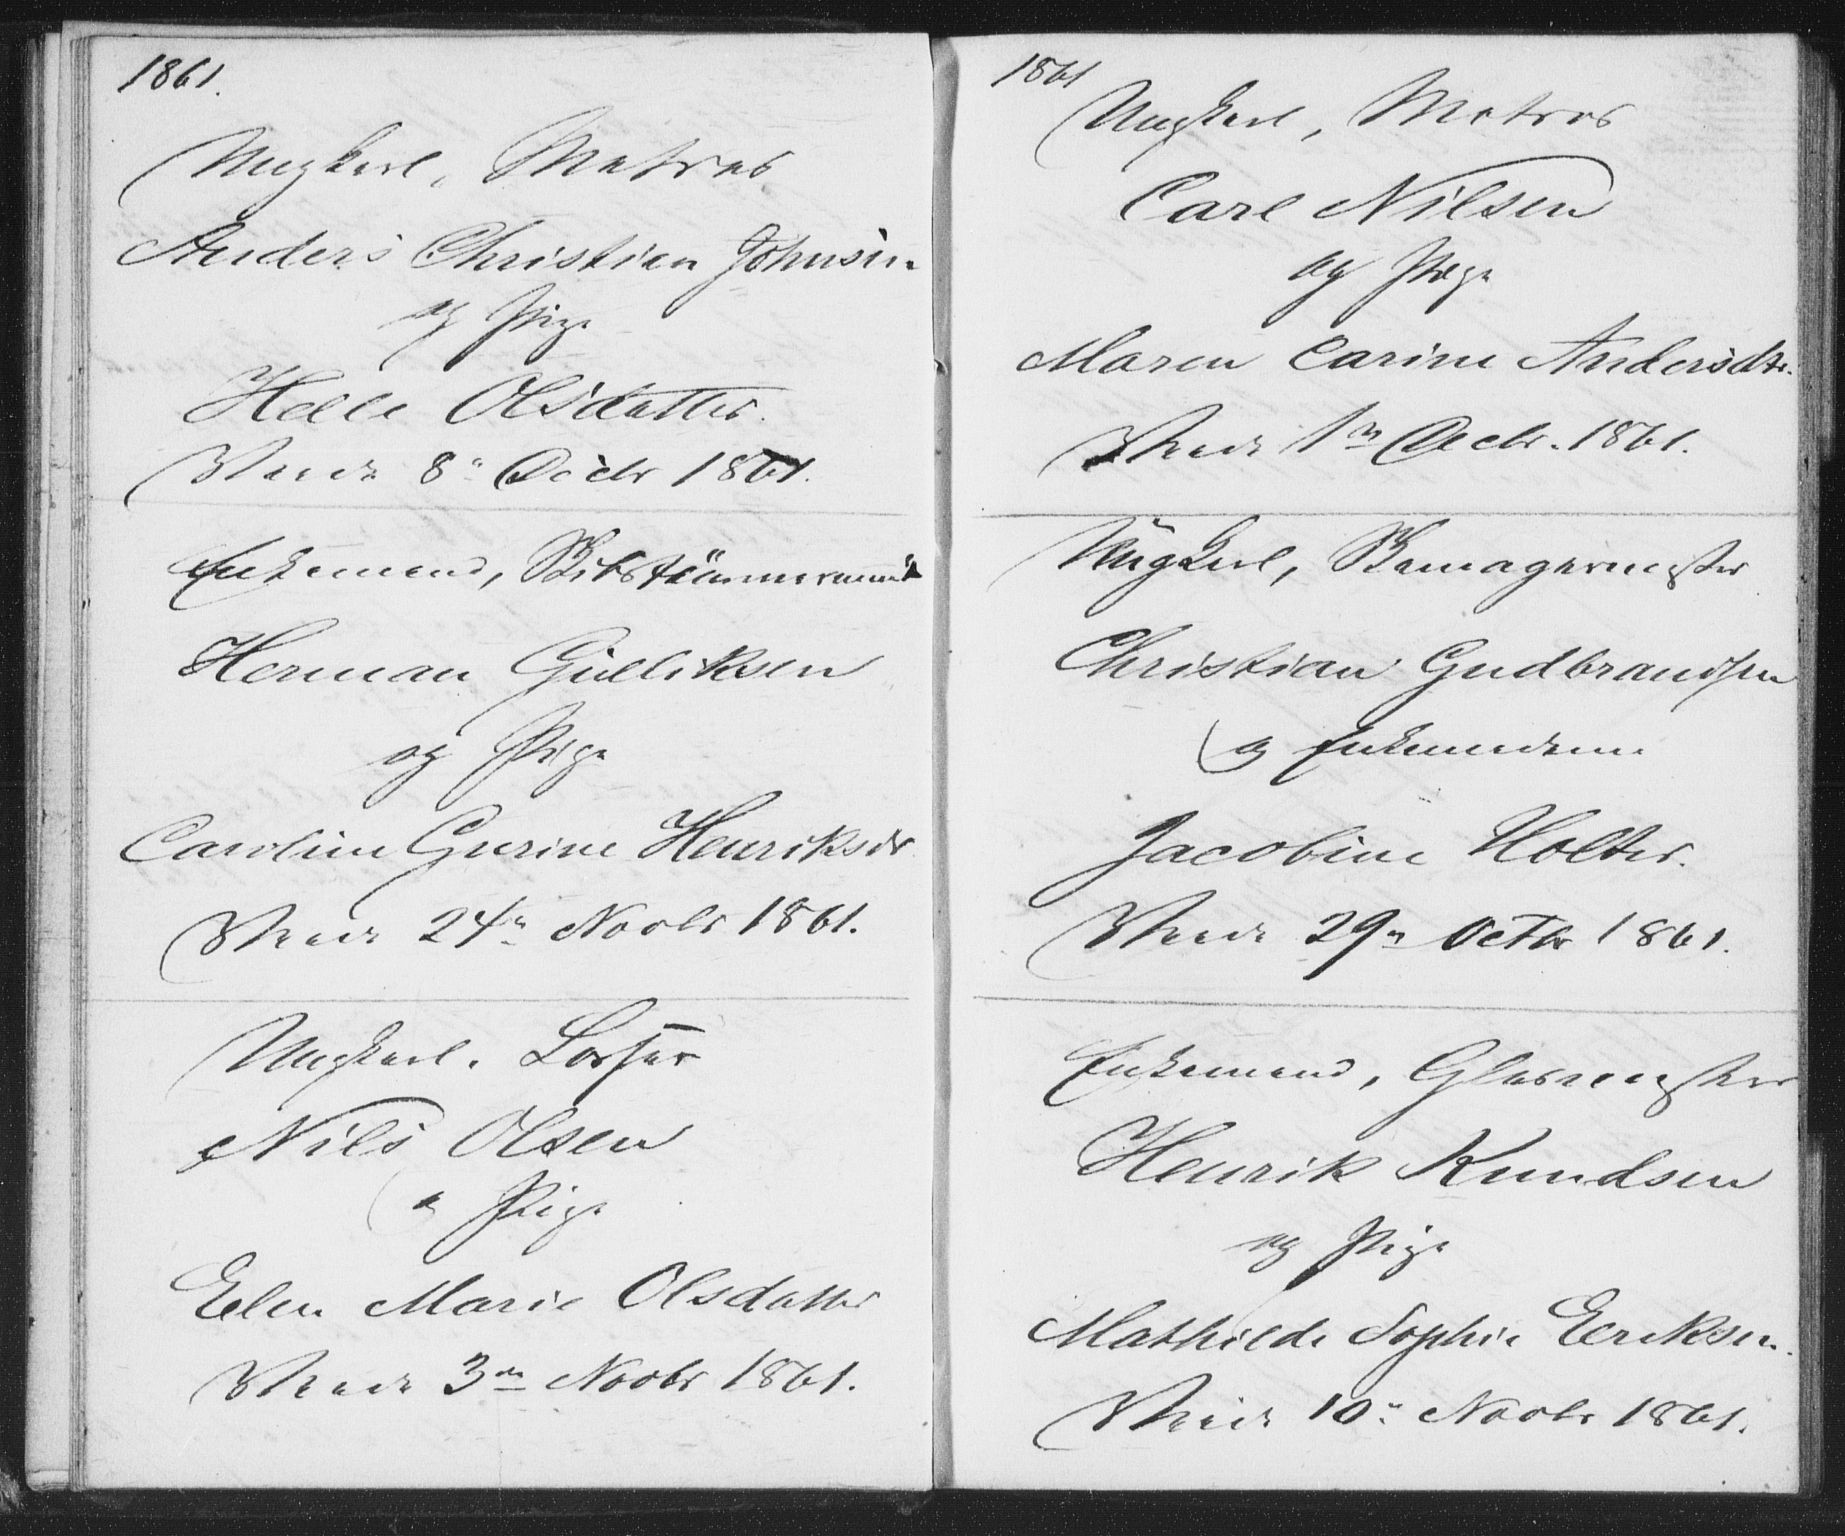 1861.
Ungkarl, Matros
Anders Christian Johnsen
og Pige
Helle Olsdatter.
Viede 8de Decbr 1861.
Enkemand, Skibstömmermand
Herman Gulliksen
og Pige
Caroline Gurine Henriksdr
Viede 24de Novbr 1861.
Ungkarl. Lodser
Nils Olsen
og Pige
Elen Marie Olsdatter
Viede 3die Novbr 1861.
1861
Ungkarl, Matros
Carl Nilsen
og Pige
Maren Carine Andersdtr.
Viede 1ste Decbr. 1861.
Ungkarl, Skomagermester
Christian Gudbrandsen
og
Jacobine Holter.
Viede 29de Octbr 1861.
Enkemand, Glasmester
Henrik Knudsen
og Pige
Mathilde Sophie Eriksen.
Viede 10de Novbr 1861.